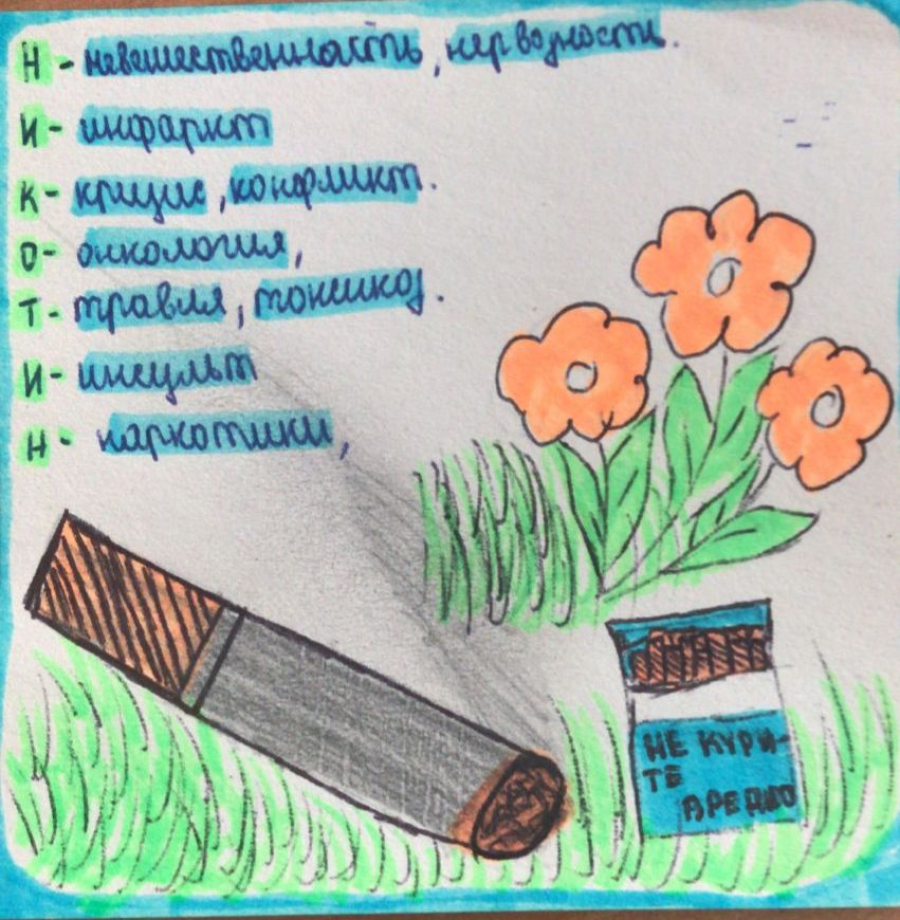 Н - невешественность, нервозность.
И - инфаркт
К - кризис, конфликт.
О - онкология,
Т - травля, токсикоз.
И - инсульт
Н - наркотики,
НЕ КУРИ-
ТЕ
ВРЕДНО